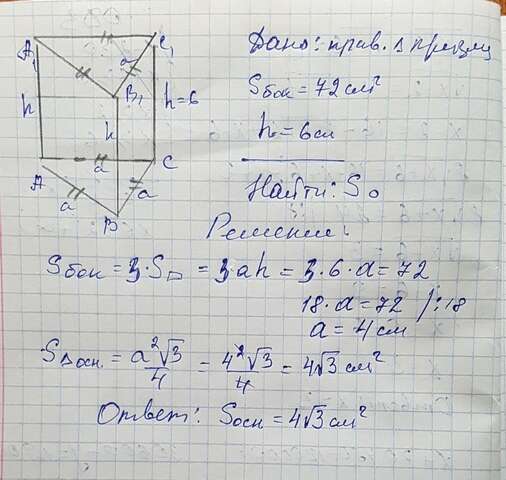 A₁ C₁
a
B₁
h h h=6
a
A C
a a
B
Дано: прав. Δ призма
Sбок = 72 см²
h = 6 см
Найти: S₀
Решение:
Sбок = 3·S▱ = 3·ah = 3·6·a = 72
18·a = 72 /:18
a = 4 см
SΔосн. = a²√3/4 = 4²√3/4 = 4√3 см²
Ответ: Sосн = 4√3 см²